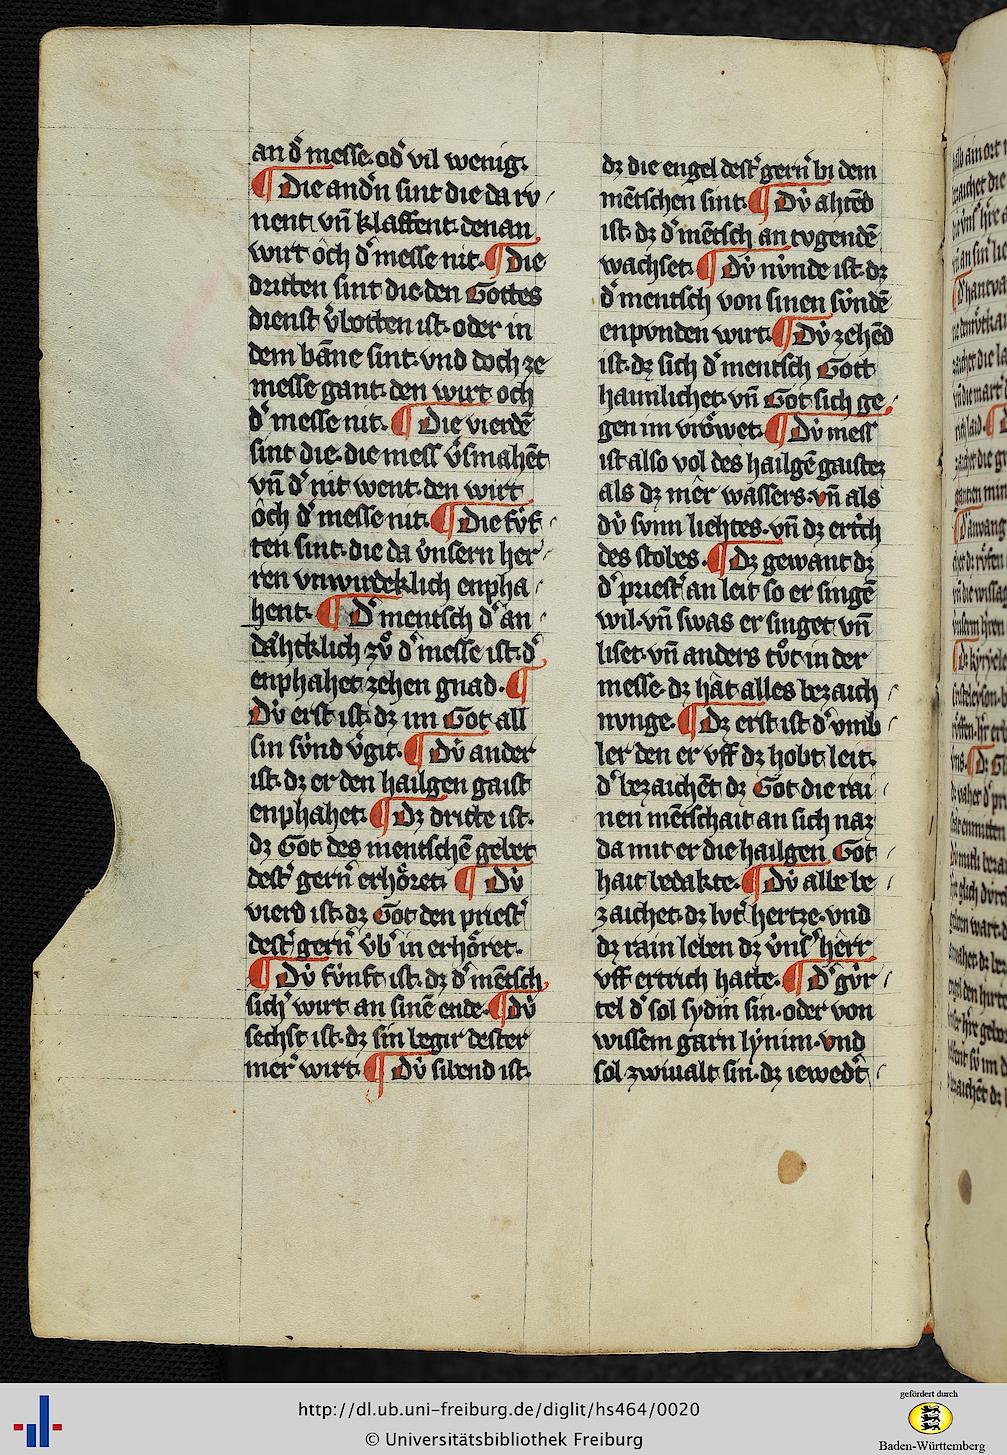 an dˀ messe. odˀ vil wenig.
¶ Die andˀn sint die da rv
nent vn̄ klaffent. denan
wirt öch dˀ messe nit. ¶ Die
dritten sint die. den Gottes
dienst v̓botten ist. oder in
dem bāne sint. vnd doch ze
messe gant. den wirt och
dˀ messe nit. ¶ Die vierdē
sint die. die mess v̓smahēt
vn̄ dˀ nit went. den wirt
öch dˀ messe nit. ¶ Die fv́nf
ten sint. die da v́nsern her
ren vnwirdeklich enpha
hent. ¶ Dˀ mentsch dˀ an
dähtklich zv̊ dˀ messe ist. dˀ
enphahet zehen gnad. ¶
Dv́ erst ist. dz im Got all
sin sv́nd v̓git. ¶ Dv́ ander
ist. dz er den hailgen gaist
enphahet. ¶ Dz dritte ist.
dz Got des mentschē gebet
destˀ gernˀ erhöret. ¶ Dv́
vierd ist. dz Got den priestˀ
destˀ gernˀ v́bˀ in erhöret.
¶ Dv́ fv́nft ist. dz dˀ mētsch
sichˀ wirt an sinē ende. ¶ dv́
sechst ist. dz sin begir dester
merˀ wirt. ¶ Dv́ sibend ist.
dz die engel destˀ gernˀ bi dem
mētschen sint. ¶ Dv́ ahtēd
ist. dz dˀ mētsch an tvgendē
wachset. ¶ Dv́ nv́nde ist. dz
dˀ mentsch von sinen sv́ndē
enpvnden wirt. ¶ Dv́ zehēd
ist. dz sich dˀ mentsch Gott
haimlichet. vn̄ Got sich ge
gen im vröwet. ¶ Dv́ mess
ist also vol des hailgē gaistez
als dz mêr wassers. vn̄ als
dv́ svnn liehtes. vn̄ dz ertrich
des stobes. ¶ Dz gewant dz
dˀ priestˀ an leit so er singē
wil. vn̄ swas er singet vn̄
liset. vn̄ anders tv̊t in der
messe. dz hât alles bezaich
nvnge. ¶ Dz erst ist dˀ vmb
ler den er vff dz hobt leit.
dˀ bezaichēt dz Got die rai
nen mētschait an sich naz
da mit er die hailgen Got
hait bedakte. ¶ Dv́ alle be
zaichet. dz lvtˀ hertze. vnd
dz rain leben dz v́nsˀ herr
vff ertrich hatte. ¶ Dˀ gv́r
tel dˀ sol sydin sin. oder von
wissem garn lýnim. vnd
sol zwiualt sin. dz iewedˀt
http://dl.ub.uni-freiburg.de/diglit/hs464/0020
© Universitätsbibliothek Freiburg
gefördert durch
Baden-Württemberg